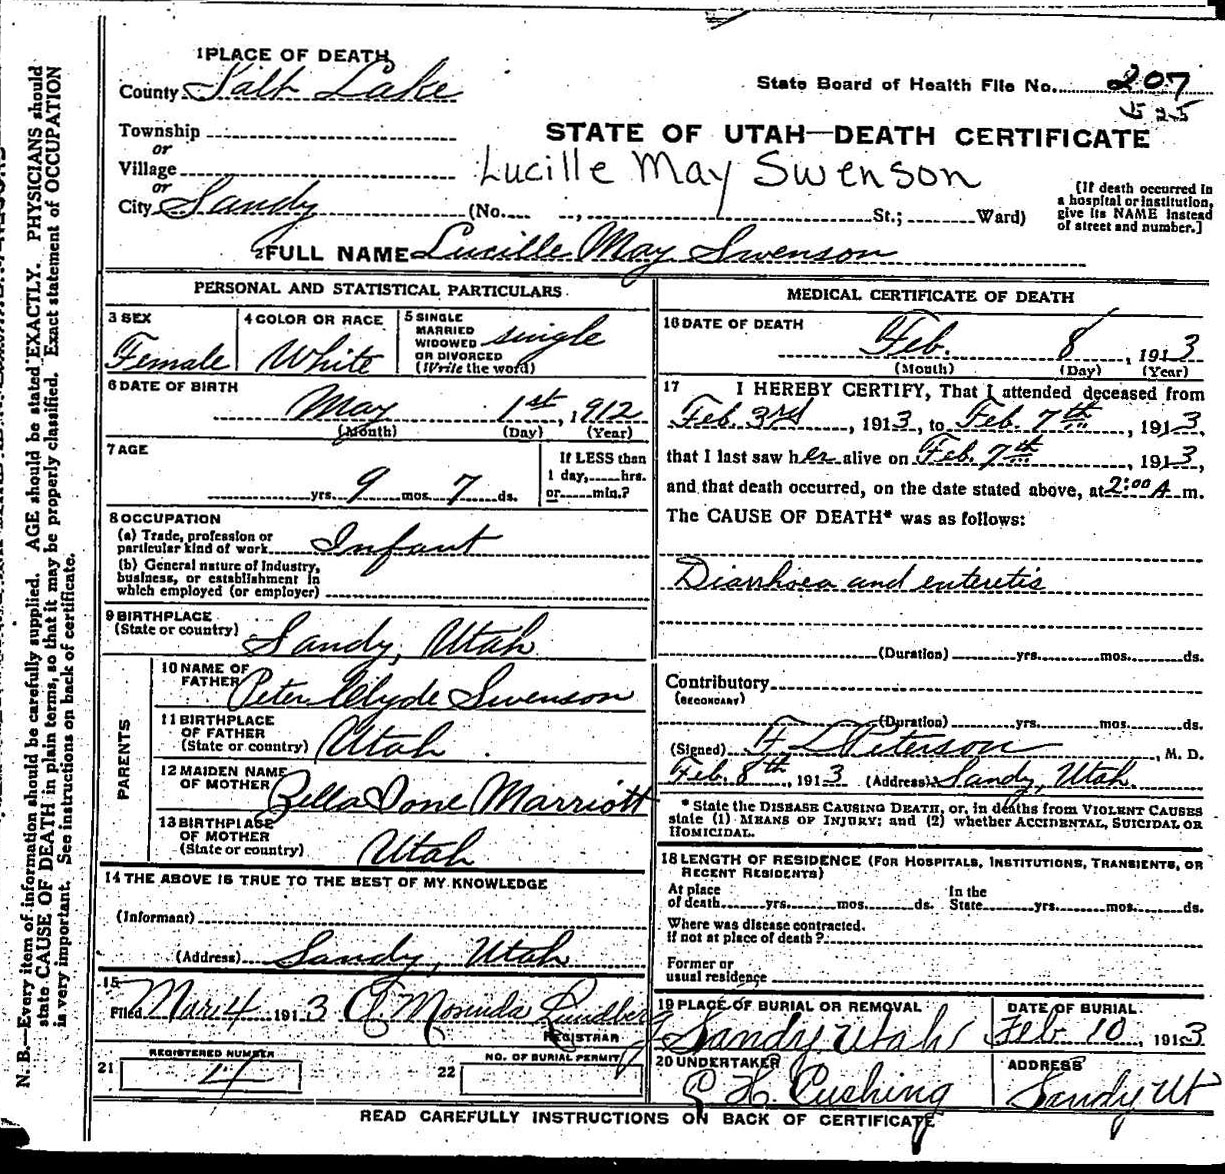 1 PLACE OF DEATH
County Salt Lake
State Board of Health File No. 207
Township
or
Village
or
City Sandy (No. , St.; Ward)
STATE OF UTAH—DEATH CERTIFICATE
Lucille May Swenson
[If death occurred in
a hospital or institution,
give its NAME instead
of street and number.]
2 FULL NAME Lucille May Swenson
PERSONAL AND STATISTICAL PARTICULARS
3 SEX
Female
4 COLOR OR RACE
White
5 SINGLE
MARRIED
WIDOWED
OR DIVORCED
(Write the word)
single
6 DATE OF BIRTH
May 1st, 1912
(Month) (Day) (Year)
7 AGE
yrs. 9 mos. 7 ds.
If LESS than
1 day, hrs.
or min.?
8 OCCUPATION
(a) Trade, profession or
particular kind of work Infant
(b) General nature of Industry,
business, or establishment in
which employed (or employer)
9 BIRTHPLACE
(State or country) Sandy, Utah
PARENTS
10 NAME OF
FATHER Peter Clyde Swenson
11 BIRTHPLACE
OF FATHER
(State or country) Utah
12 MAIDEN NAME
OF MOTHER Zella Ione Marriott
13 BIRTHPLACE
OF MOTHER
(State or country) Utah
14 THE ABOVE IS TRUE TO THE BEST OF MY KNOWLEDGE
(Informant)
(Address) Sandy, Utah
15
Filed Mar 4 1913
REGISTRAR
21 REGISTERED NUMBER
4
22 NO. OF BURIAL PERMIT
MEDICAL CERTIFICATE OF DEATH
16 DATE OF DEATH
Feb. 8, 1913
(Month) (Day) (Year)
17 I HEREBY CERTIFY, That I attended deceased from
Feb. 3rd, 1913, to Feb. 7th, 1913,
that I last saw her alive on Feb. 7th, 1913,
and that death occurred, on the date stated above, at 2:00 A m.
The CAUSE OF DEATH* was as follows:
Diarrhoea and enteretis
(Duration) yrs. mos. ds.
Contributory
(SECONDARY)
(Duration) yrs. mos. ds.
(Signed) Peterson, M. D.
Feb. 8th, 1913 (Address) Sandy, Utah
* State the DISEASE CAUSING DEATH, or, in deaths from VIOLENT CAUSES
state (1) MEANS OF INJURY; and (2) whether ACCIDENTAL, SUICIDAL OR
HOMICIDAL.
18 LENGTH OF RESIDENCE (FOR HOSPITALS, INSTITUTIONS, TRANSIENTS, OR
RECENT RESIDENTS)
At place
of death yrs. mos. ds.
In the
State yrs. mos. ds.
Where was disease contracted,
if not at place of death?
Former or
usual residence
19 PLACE OF BURIAL OR REMOVAL
Sandy Utah
DATE OF BURIAL
Feb 10, 1913
20 UNDERTAKER
Cushing
ADDRESS
Sandy Ut
READ CAREFULLY INSTRUCTIONS ON BACK OF CERTIFICATE
N. B.—Every item of information should be carefully supplied. AGE should be stated EXACTLY. PHYSICIANS should
state CAUSE OF DEATH in plain terms, so that it may be properly classified. Exact statement of OCCUPATION
is very important. See instructions on back of certificate.